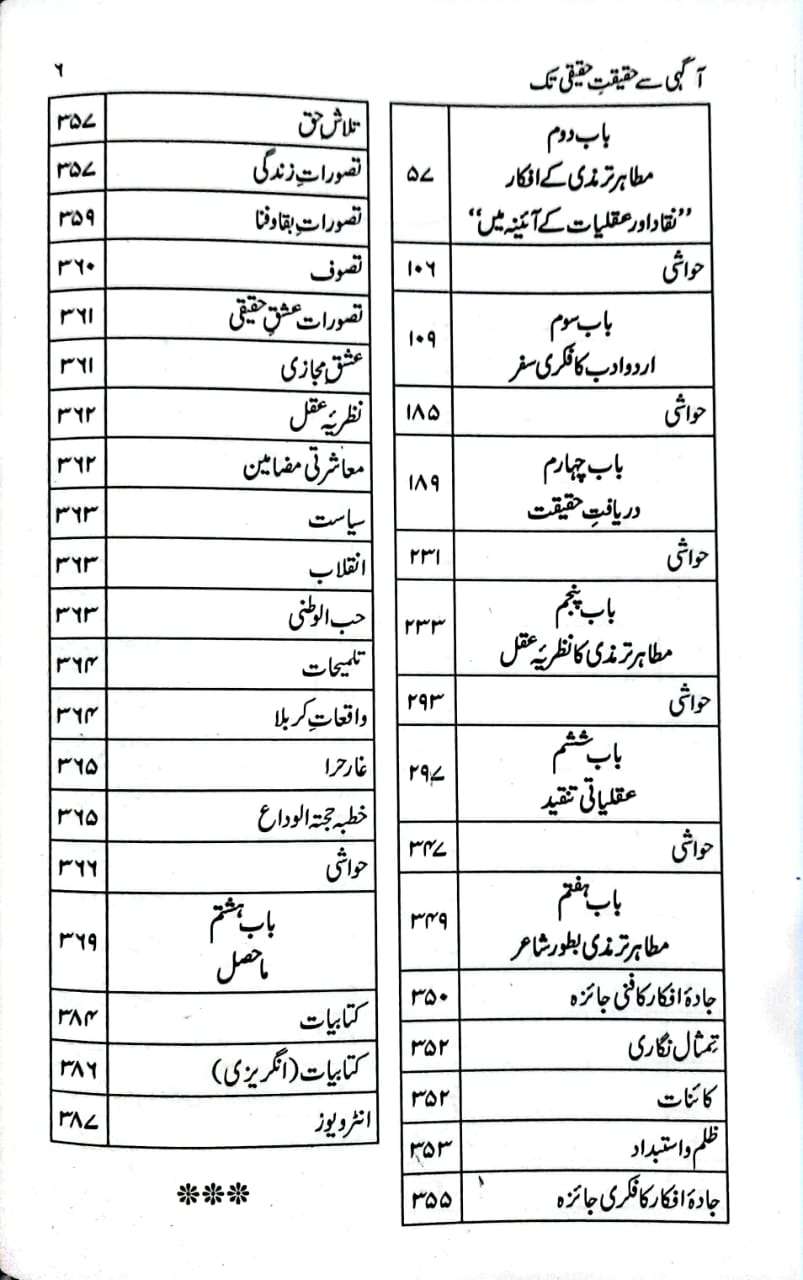 آگہی سے حقیقتِ حقیقی تک
٦
باب دوم
مطاہر ترمذی کے افکار
”نقاد اور عقلیات کے آئینہ میں“
۵۷
حواشی
۱۰۶
باب سوم
اردو ادب کا فکری سفر
۱۰۹
حواشی
۱۸۵
باب چہارم
دریافتِ حقیقت
۱۸۹
حواشی
۲۳۱
باب پنجم
مطاہر ترمذی کا نظریۂ عقل
۲۳۳
حواشی
۲۹۳
باب ششم
عقلیاتی تنقید
۲۹۷
حواشی
۳۴۷
باب ہفتم
مطاہر ترمذی بطور شاعر
۳۴۹
جادۂ افکار کا فنی جائزہ
۳۵۰
تمثال نگاری
۳۵۲
کائنات
۳۵۲
ظلم و استبداد
۳۵۳
جادۂ افکار کا فکری جائزہ
۳۵۵
تلاش حق
۳۵۷
تصوراتِ زندگی
۳۵۷
تصوراتِ بقا و فنا
۳۵۹
تصوف
۳۶۰
تصورات عشقِ حقیقی
۳۶۱
عشقِ مجازی
۳۶۱
نظریۂ عقل
۳۶۲
معاشرتی مضامین
۳۶۲
سیاست
۳۶۳
انقلاب
۳۶۳
حب الوطنی
۳۶۳
تلمیحات
۳۶۴
واقعاتِ کربلا
۳۶۴
غار حرا
۳۶۵
خطبہ حجتہ الوداع
۳۶۵
حواشی
۳۶۶
باب ہشتم
ماحصل
۳۶۹
کتابیات
۳۸۴
کتابیات (انگریزی)
۳۸۶
انٹرویوز
۳۸۷
***